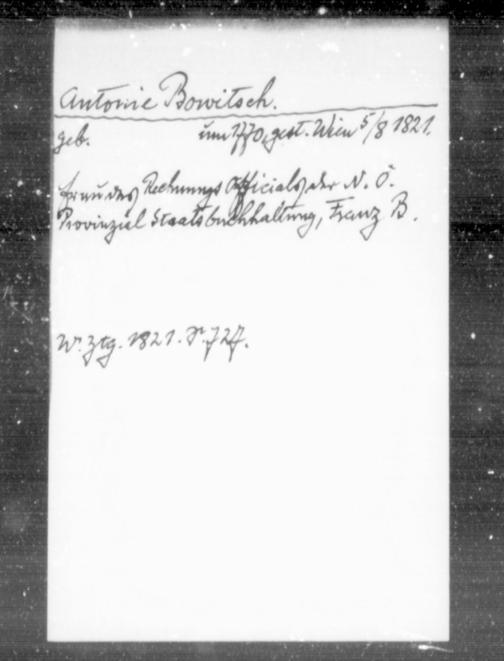 Antonie Bowitsch.
geb. um 1770, gest. Wien 5/8 1821.
Frau des Rechnungs Officials der N. Ö.
Provinzial Staatsbuchhaltung, Franz B.
Wr. Ztg. 1821. S. 727.